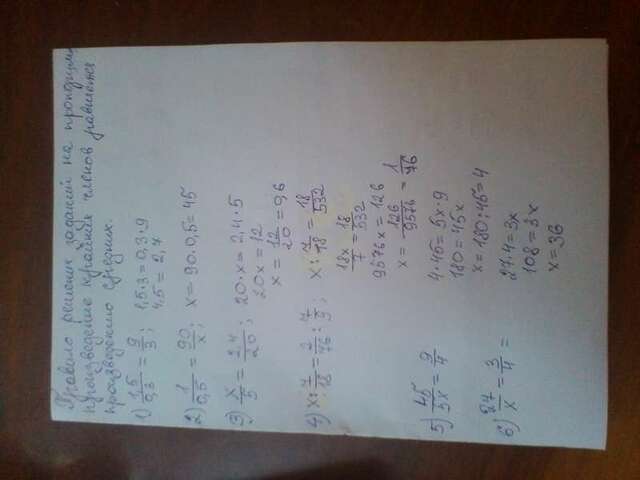 Правило решения заданий на пропорции:
произведение крайних членов равняется
произведению средних.
1) 1,5/0,3 = 9/3; 1,5·3=0,3·9
4,5 = 2,7
2) 1/0,5 = 90/x; x=90·0,5=45
3) x/5 = 2,4/20; 20·x=2,4·5
20x=12
x = 12/20 = 0,6
4) x:7/18 = 2/76 : 7/9; x:7/18 = 18/532
18x/7 = 18/532
9576x=126
x = 126/9576 = 1/76
5) 45/5x = 9/4 4·45=5x·9
180=45x
x=180:45=4
6) 27/x = 3/4 = 27·4=3x
108=3x
x=36